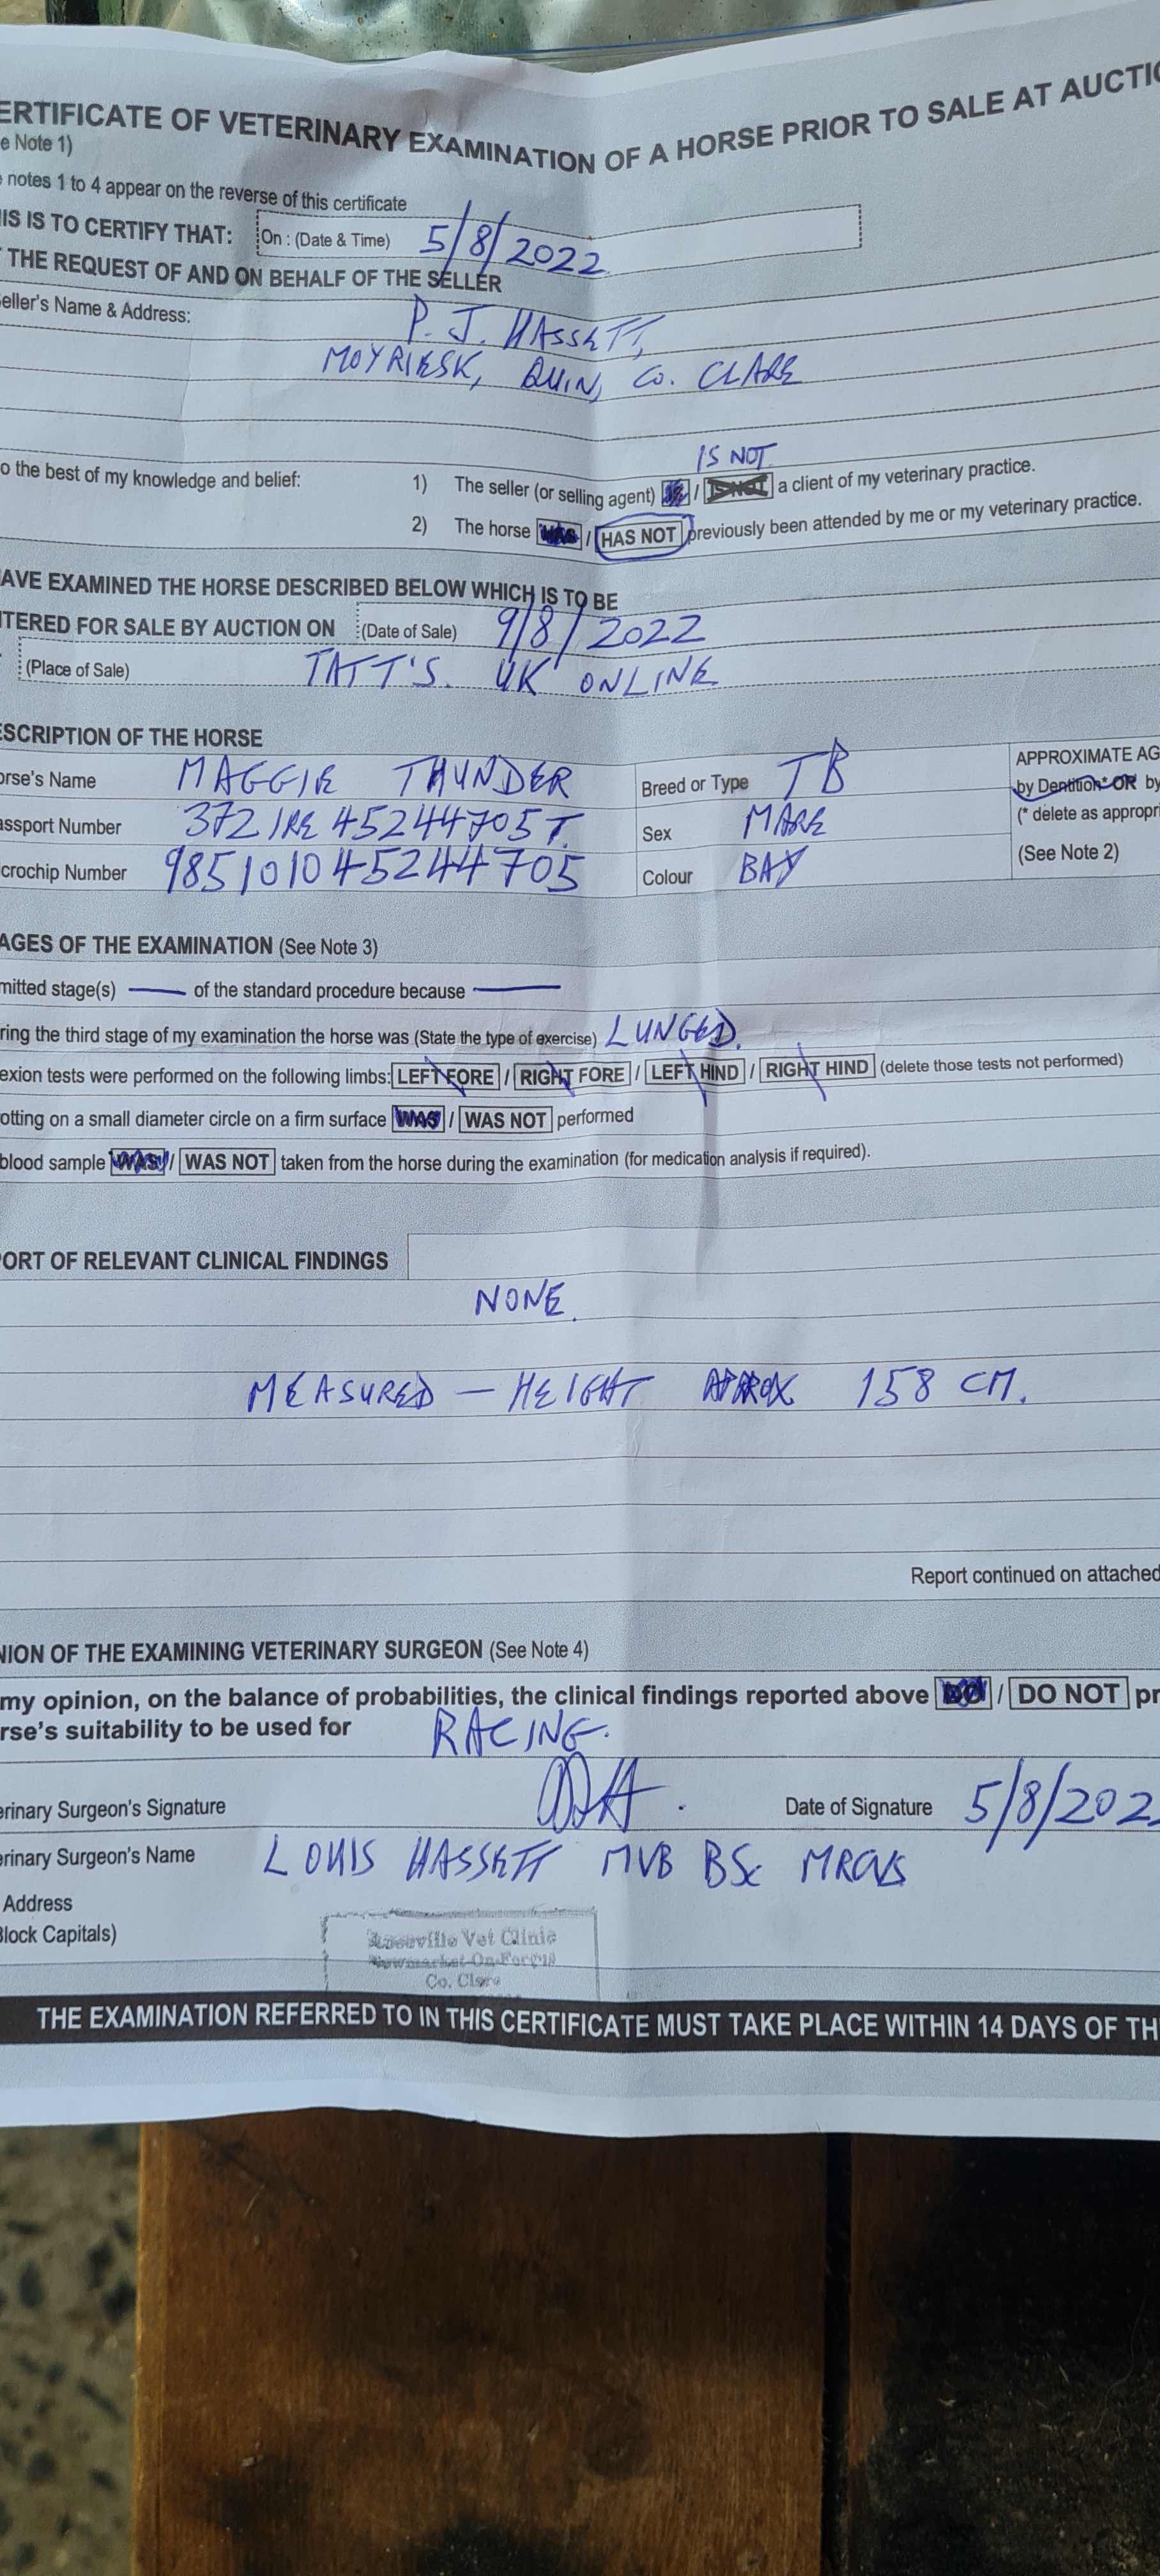 ERTIFICATE OF VETERINARY EXAMINATION OF A HORSE PRIOR TO SALE AT AUCTIO
e Note 1)
notes 1 to 4 appear on the reverse of this certificate
IS IS TO CERTIFY THAT: On : (Date & Time) 5/8/2022
THE REQUEST OF AND ON BEHALF OF THE SELLER
eller's Name & Address: P. J. HASSETT,
MOYRIESK, QUIN, CO. CLARE
IS NOT
o the best of my knowledge and belief: 1) The seller (or selling agent) IS / IS NOT a client of my veterinary practice.
2) The horse HAS / HAS NOT previously been attended by me or my veterinary practice.
AVE EXAMINED THE HORSE DESCRIBED BELOW WHICH IS TO BE
TERED FOR SALE BY AUCTION ON (Date of Sale) 9/8/2022
(Place of Sale) TATT'S. UK ONLINE
ESCRIPTION OF THE HORSE
orse's Name MAGGIE THUNDER Breed or Type TB APPROXIMATE AG
by Dentition* OR by
assport Number 372 IRE 45244705T. Sex MARE (* delete as appropri
crochip Number 985101045244705 Colour BAY (See Note 2)
AGES OF THE EXAMINATION (See Note 3)
mitted stage(s) — of the standard procedure because —
ring the third stage of my examination the horse was (State the type of exercise) LUNGED.
exion tests were performed on the following limbs: LEFT FORE / RIGHT FORE / LEFT HIND / RIGHT HIND (delete those tests not performed)
otting on a small diameter circle on a firm surface WAS / WAS NOT performed
blood sample WAS / WAS NOT taken from the horse during the examination (for medication analysis if required).
ORT OF RELEVANT CLINICAL FINDINGS
NONE.
MEASURED — HEIGHT APPROX 158 CM.
Report continued on attached
NION OF THE EXAMINING VETERINARY SURGEON (See Note 4)
my opinion, on the balance of probabilities, the clinical findings reported above DO / DO NOT pr
rse's suitability to be used for RACING.
erinary Surgeon's Signature Date of Signature 5/8/202
erinary Surgeon's Name LOUIS HASSETT MVB BSc MRCVS
Address
Block Capitals)
Vet Clinic
Newmarket-On-Fergus
Co. Clare
THE EXAMINATION REFERRED TO IN THIS CERTIFICATE MUST TAKE PLACE WITHIN 14 DAYS OF TH